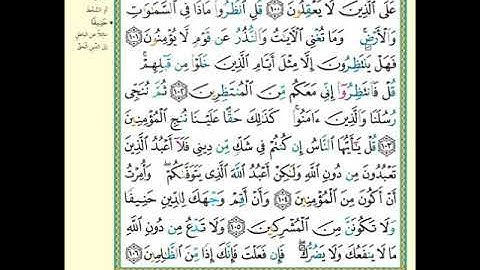 عَلَى الَّذِينَ لَا يَعْقِلُونَ ﴿١٠٠﴾ قُلِ انْظُرُوا مَاذَا فِي السَّمَوَاتِ
وَالْأَرْضِ ۚ وَمَا تُغْنِي الْآيَاتُ وَالنُّذُرُ عَنْ قَوْمٍ لَا يُؤْمِنُونَ ﴿١٠١﴾
فَهَلْ يَنْتَظِرُونَ إِلَّا مِثْلَ أَيَّامِ الَّذِينَ خَلَوْا مِنْ قَبْلِهِمْ ۚ
قُلْ فَانْتَظِرُوا إِنِّي مَعَكُمْ مِنَ الْمُنْتَظِرِينَ ﴿١٠٢﴾ ثُمَّ نُنَجِّي
رُسُلَنَا وَالَّذِينَ ءَامَنُوا ۚ كَذَلِكَ حَقًّا عَلَيْنَا نُنْجِ الْمُؤْمِنِينَ
﴿١٠٣﴾ قُلْ يَأَيُّهَا النَّاسُ إِنْ كُنْتُمْ فِي شَكٍّ مِنْ دِينِي فَلَا أَعْبُدُ الَّذِينَ
تَعْبُدُونَ مِنْ دُونِ اللَّهِ وَلَكِنْ أَعْبُدُ اللَّهَ الَّذِي يَتَوَفَّاكُمْ ۖ وَأُمِرْتُ
أَنْ أَكُونَ مِنَ الْمُؤْمِنِينَ ﴿١٠٤﴾ وَأَنْ أَقِمْ وَجْهَكَ لِلدِّينِ حَنِيفًا
وَلَا تَكُونَنَّ مِنَ الْمُشْرِكِينَ ﴿١٠٥﴾ وَلَا تَدْعُ مِنْ دُونِ اللَّهِ
مَا لَا يَنْفَعُكَ وَلَا يَضُرُّكَ ۖ فَإِنْ فَعَلْتَ فَإِنَّكَ إِذًا مِنَ الظَّالِمِينَ ﴿١٠٦﴾
حَنِيفًا